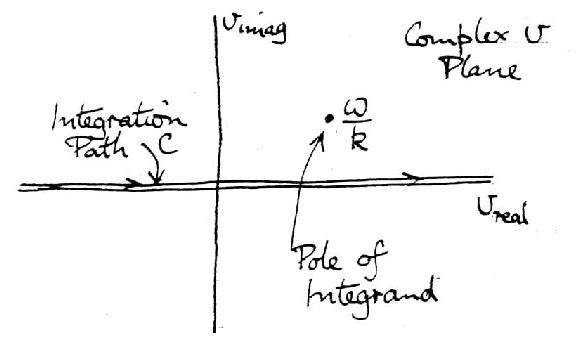 v imag
Complex v
Plane
Integration
Path C
ω
k
v real
Pole of
Integrand